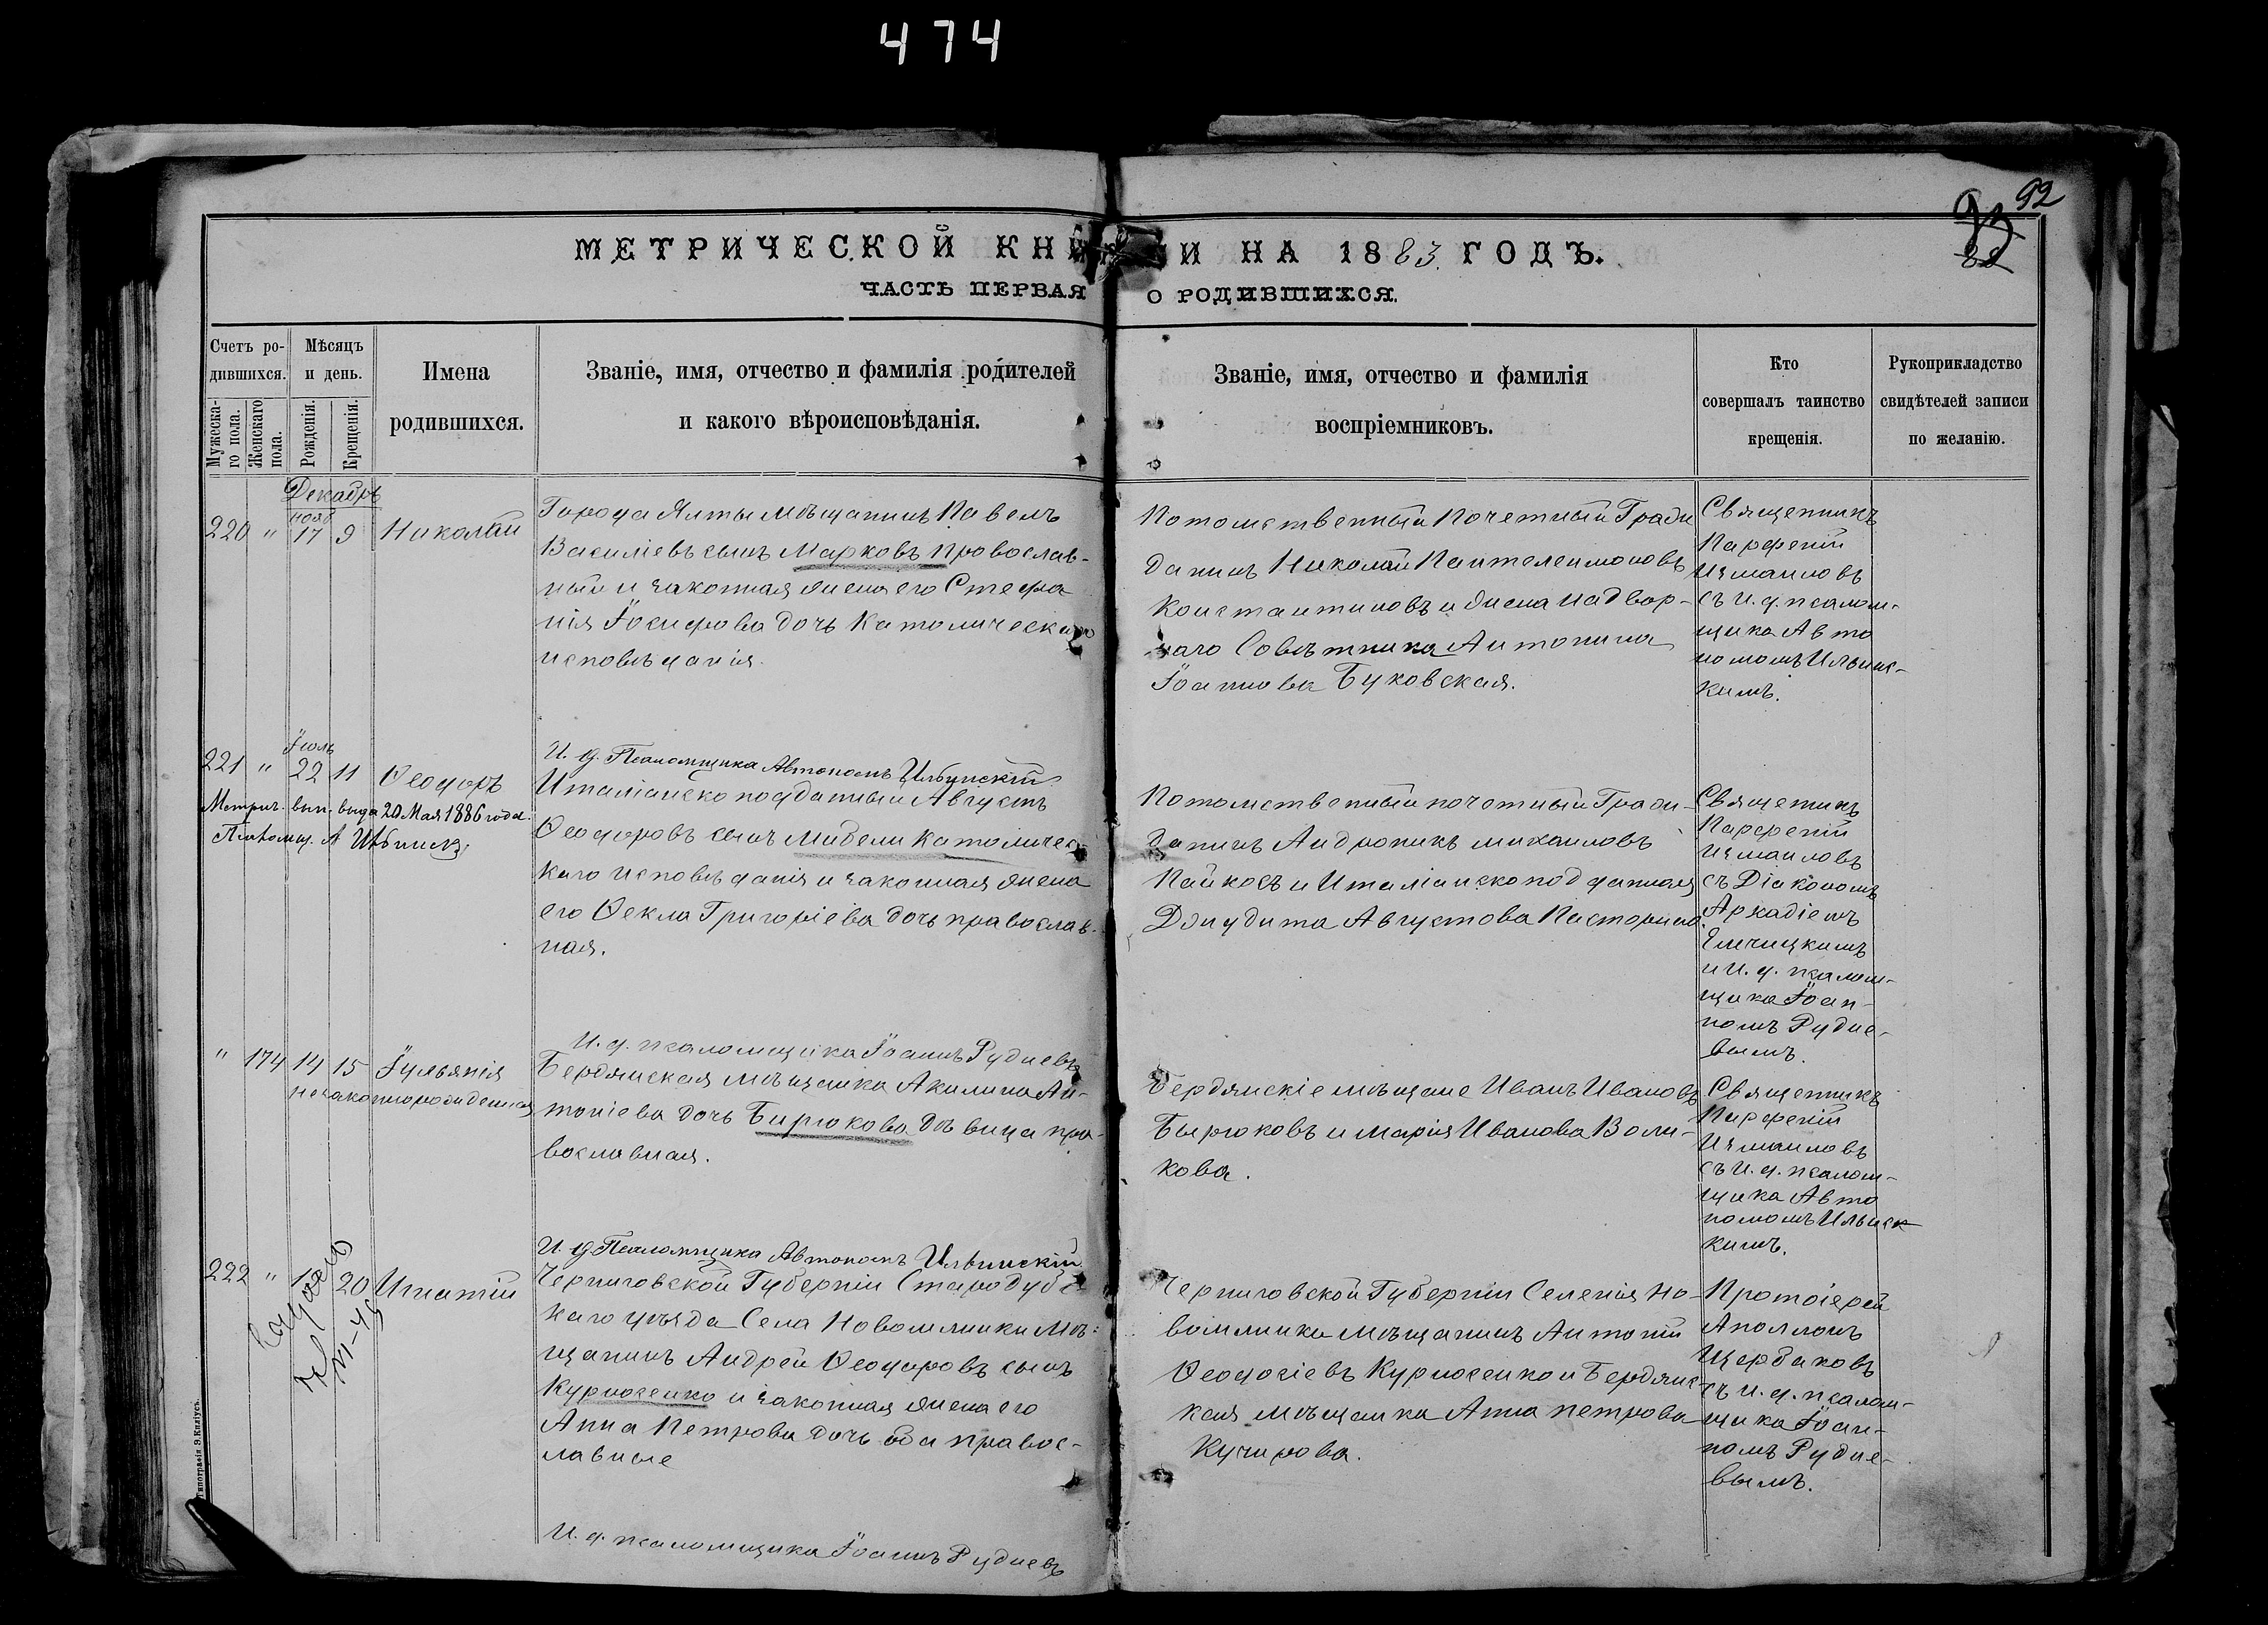 474
92
МЕТРИЧЕСКОЙ КНИГИ НА 1883 ГОДЪ.
ЧАСТЬ ПЕРВАЯ О РОДИВШИХСЯ.
Счетъ ро-
дившихся.
Мужеска-
го пола.
Женскаго
пола.
Мѣсяцъ
и день.
Рожденія.
Крещенія.
Имена
родившихся.
Званіе, имя, отчество и фамилія родителей
и какого вѣроисповѣданія.
Званіе, имя, отчество и фамилія
воспріемниковъ.
Кто
совершалъ таинство
крещенія.
Рукоприкладство
свидѣтелей записи
по желанію.
Декабрь
нояб
220 " 17 9 Николай
Города Ялты мѣщанинъ Павелъ
Василіевъ сынъ Марковъ православ-
ный и законная жена его Стефа
нія Іосифова дочь Католическаго
исповѣданія.
Потомственный Почетный Гражд
данинъ Николай Пантелеимоновъ
Константиновъ и жена надвор-
наго Совѣтника Антонина
Іоаннова Буковская.
Священникъ
Парфеній
Измаиловъ
съ И. д. псалом-
щика Авто
номомъ Ильинс-
кимъ.
И. д. Псаломщика Автономъ Ильинскій
Іюль
221 " 22 11 Ѳеодоръ
Метрич. вып. выда 20 Мая 1886 года.
Псаломщ. А Ильинск.
Италіанско подданный Августъ
Ѳеодоровъ сынъ Мидели Католичес-
каго исповѣданія и законная жена
его Ѳекла Григоріева дочь православ-
ная.
Потомственный почетный Граж-
данинъ Андроникъ Михаиловъ
и Италіанско подданная
Джудита Августова
Священикъ
Парфеній
Измаиловъ
съ Діакономъ
Аркадіемъ
и И. д. псалом-
щика Іоан-
номъ Рудне-
вымъ.
И. д. псаломщика Іоаннъ Рудневъ
" 174 14 15 Іульянія
незаконнорожденная
Бердянская мѣщанка Акилина Ан-
тоніева дочь Бирюкова дѣвица пра-
вославная.
Бердянскіе мѣщане Иванъ Ивановъ
Бырюковъ и Марія Иванова Воли-
кова.
Священникъ
Парфеній
Измаиловъ
съ И. д. псалом-
щика Авто
номомъ Ильинск
кимъ.
И. д. Псаломщика Автономъ Ильинскій
222 " 19 20 Игнатій
Черниговской Губерніи Стародубс
каго уѣзда Села Новомлинки Мѣ-
щанинъ Андрей Ѳеодоровъ сынъ
Курносенко и законная жена его
Анна Петрова дочь оба правос-
лавные
Черниговской Губерніи Селенія Но-
вомлинка мѣщанинъ Антоній
Ѳеодосіевъ Курносенко и Бердянс-
кая мѣщанка Анна Петрова
Кучирова.
Протоіерей
Аполлонъ
Щербаковъ
съ И. д. псалом-
щика Іоан-
номъ Рудне-
вымъ.
И. д. псаломщика Іоаннъ Рудневъ